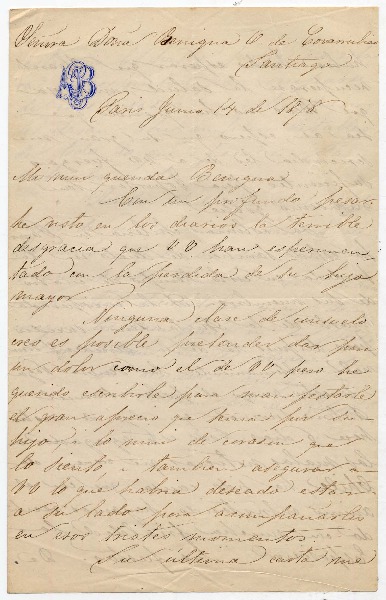 Señora Doña Benigna O de Covarrubias
Santiago
AB
Paris Junio 14 de 1878
Mi mui querida Benigna
Con un profundo pesar
he visto en los diarios la terrible
desgracia que VV han esperimen-
tado con la perdida de su hijo
mayor
Ninguna clase de consuelo
creo es posible pretender dar para
un dolor como el de VV, pero he
querido escribirle para manifestarle
el gran aprecio que tenia por su
hijo, y lo mui de corazon que
lo siento, tambien asegurar a
VV lo que habria deseado estar
a su lado para acompañarlos
en esos tristes momentos.
Su última carta me